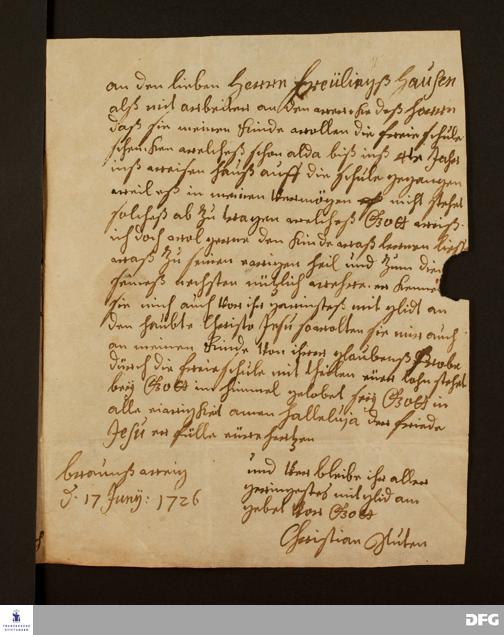 an den lieben Herrn Freülingß Hausen
alß mit arbeiter an den wercke deß Herrn
daß sie meinen Kinde wollen die freie schüle
schencken welcheß schon alda biß inß 4te Jahr
inß weisen hauß auff die schüle gegangen
weil eß in meinen vermögen nicht stehet
solcheß ab zu tragen welcheß Gott weiß
ich doch wol gerne den Kinde waß lernen ließ
waß zu seinen ewigen heil und zum die
seineß nechsten nützlich were er kenne
sie mich auch vor ihr geringsteß mit glid an
den haübte Christo Jesu so wolten sie mir auch
an meinen Kinde von ihrer glaubenß probe
dürch die freie schüle mit theilen eüer lohn stehet
beÿ Gott im himmel gelobet seÿ Gott in
alle ewigkeit amen Halleluja der friede
Jesu er fülle eüre hertzen
braunßweig
d. 17 Junÿ: 1726
und ver bleibe ihr aller
geringestes mit glid am
gebet vor Gott
Christian Ruten
FRANCKESCHE STIFTUNGEN
DFG